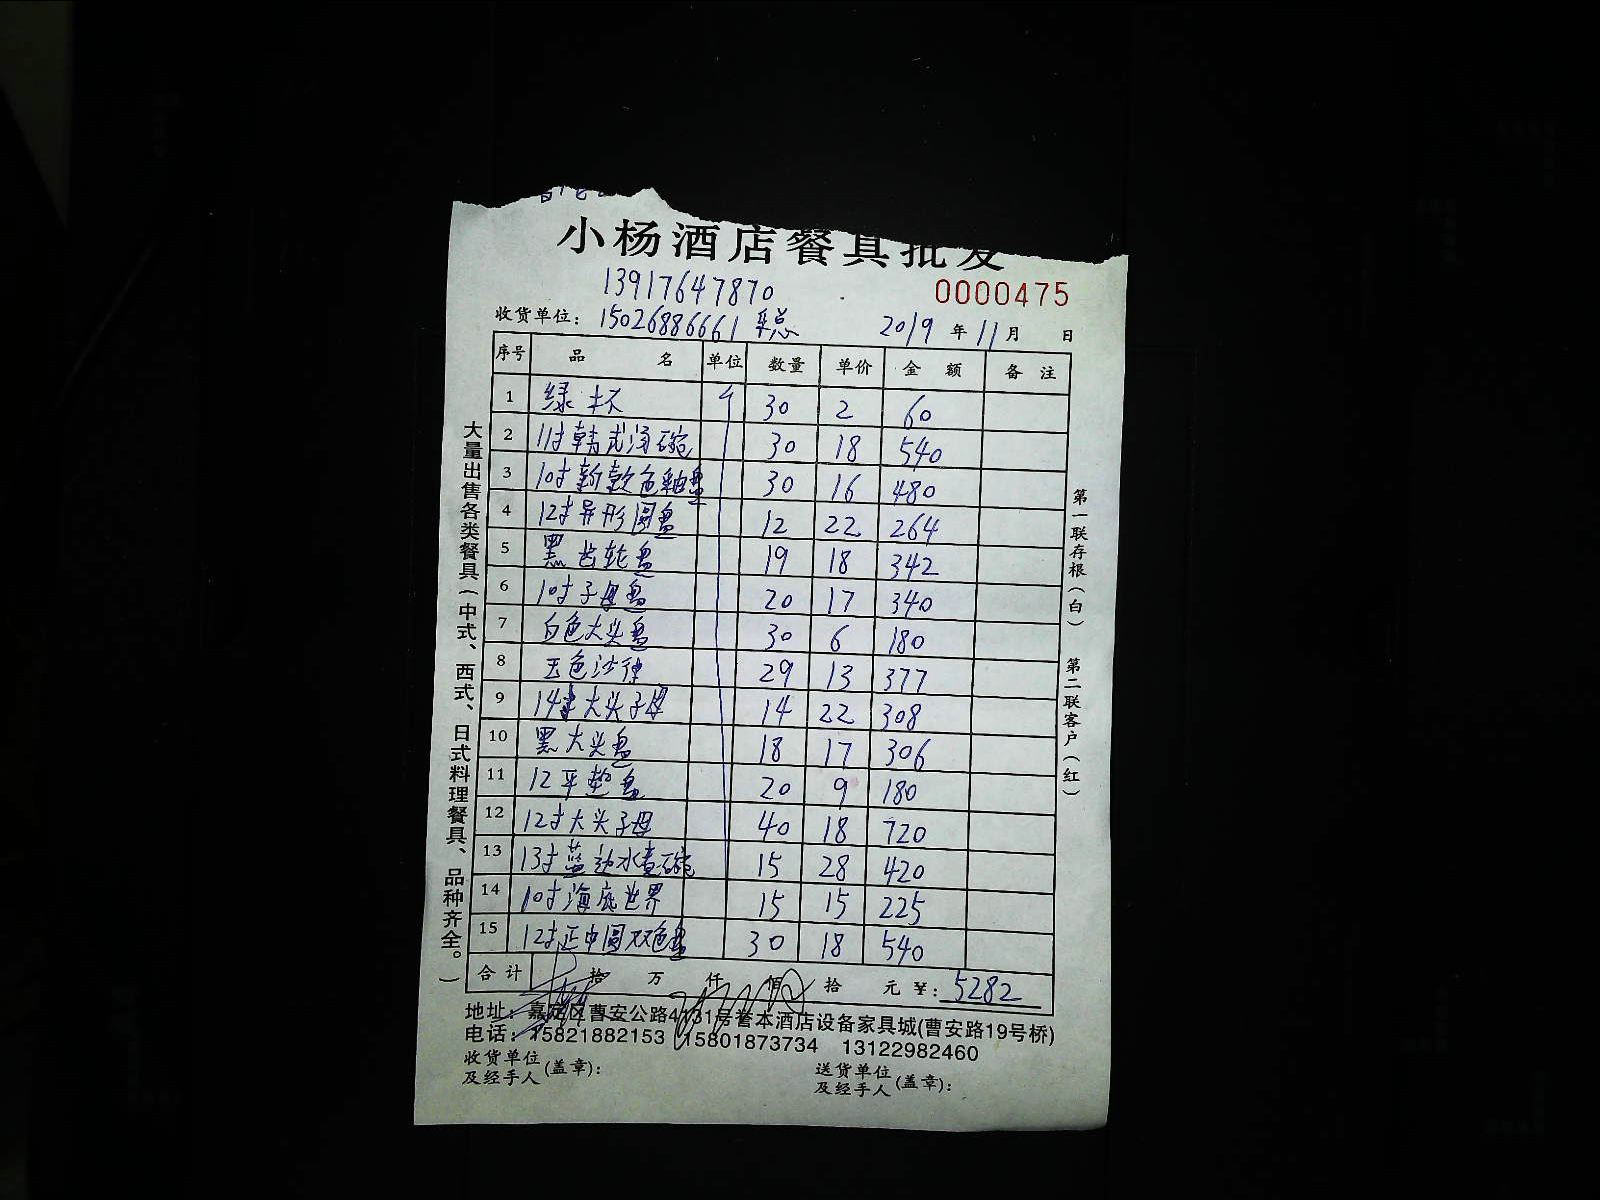 小杨酒店餐具批发
13917647870
0000475
收货单位：15026886661 总 2019年11月 日
序号 品名 单位 数量 单价 金额 备注
1 绿杯 个 30 2 60
2 11寸韩式汤碗 30 18 540
3 10寸新款色釉盘 30 16 480
4 12寸异形圆盘 12 22 264
5 黑齿轮盘 19 18 342
6 10寸子母盘 20 17 340
7 白色大头盘 30 6 180
8 玉色沙律 29 13 377
9 14寸大头子母 14 22 308
10 黑大头盘 18 17 306
11 12平垫盘 20 9 180
12 12寸大头子母 40 18 720
13 13寸蓝边水煮碗 15 28 420
14 10寸海底世界 15 15 225
15 12寸正中圆双色盘 30 18 540
合计 拾 万 仟 佰 拾 元 ¥：5282
地址：嘉定区曹安公路4131号誉本酒店设备家具城(曹安路19号桥)
电话：15821882153 15801873734 13122982460
收货单位及经手人(盖章)：
送货单位及经手人(盖章)：
大量出售各类餐具(中式、西式、日式料理餐具、品种齐全。)
第一联存根(白) 第二联客户(红)